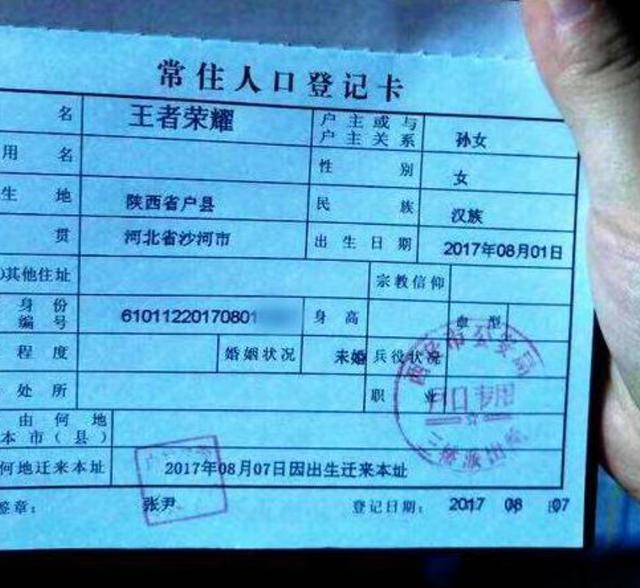 常住人口登记卡
名 王者荣耀 户主或与户主关系 孙女
用名 性别 女
生地 陕西省户县 民族 汉族
贯 河北省沙河市 出生日期 2017年08月01日
其他住址 宗教信仰
身份编号 61011220170801 身高 血型
程度 婚姻状况 未婚 兵役状况
处所 职业
由何地
本市(县)
何地迁来本址 2017年08月07日因出生迁来本址
签章: 张尹 登记日期: 2017 08 07
西安市公安局
户口专用